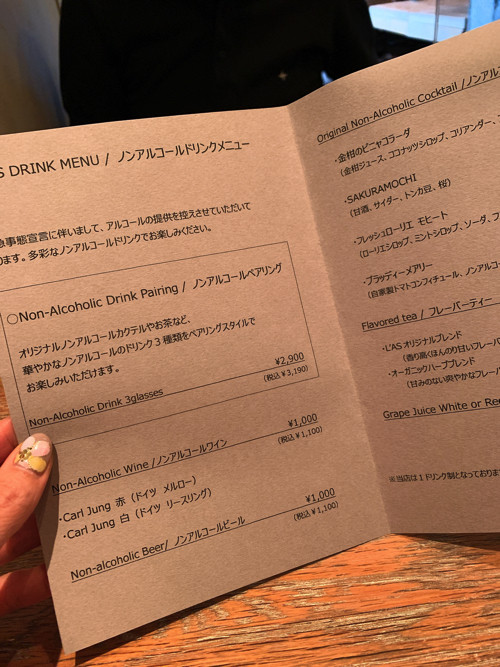 S DRINK MENU / ノンアルコールドリンクメニュー
急事態宣言に伴いまして、アルコールの提供を控えさせていただいて
ます。多彩なノンアルコールドリンクでお楽しみください。
○Non-Alcoholic Drink Pairing / ノンアルコールペアリング
オリジナルノンアルコールカクテルやお茶など、
華やかなノンアルコールのドリンク3種類をペアリングスタイルで
お楽しみいただけます。
¥2,900
Non-Alcoholic Drink 3glasses
(税込¥3,190)
¥1,000
Non-Alcoholic Wine /ノンアルコールワイン
(税込¥1,100)
・Carl Jung 赤 (ドイツ メルロー)
・Carl Jung 白 (ドイツ リースリング)
¥1,000
Non-alcoholic Beer/ ノンアルコールビール
(税込¥1,100)
Original Non-Alcoholic Cocktail /ノンアル
・金柑のピニャコラーダ
(金柑ジュース、ココナッツシロップ、コリアンダー、
・SAKURAMOCHI
(甘酒、サイダー、トンカ豆、桜)
・フレッシュローリエ モヒート
(ローリエシロップ、ミントシロップ、ソーダ、フ
・ブラッディーメアリー
(自家製トマトコンフィチュール、ノンアルコー
Flavored tea / フレーバーティー
・L'ASオリジナルブレンド
(香り高くほんのり甘いフレーバ
・オーガニックハーブブレンド
(甘みのない爽やかなフレー
Grape Juice White or Re
※当店は1ドリンク制となっておりま